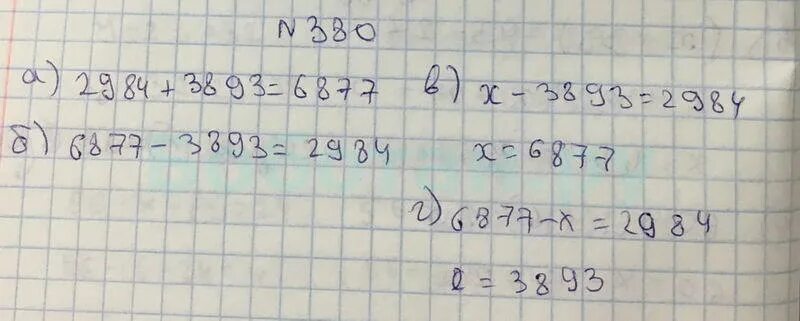 N 380
а) 2984 + 3893 = 6877
б) 6877 - 3893 = 2984
в) x - 3893 = 2984
x = 6877
г) 6877 - x = 2984
= 3893